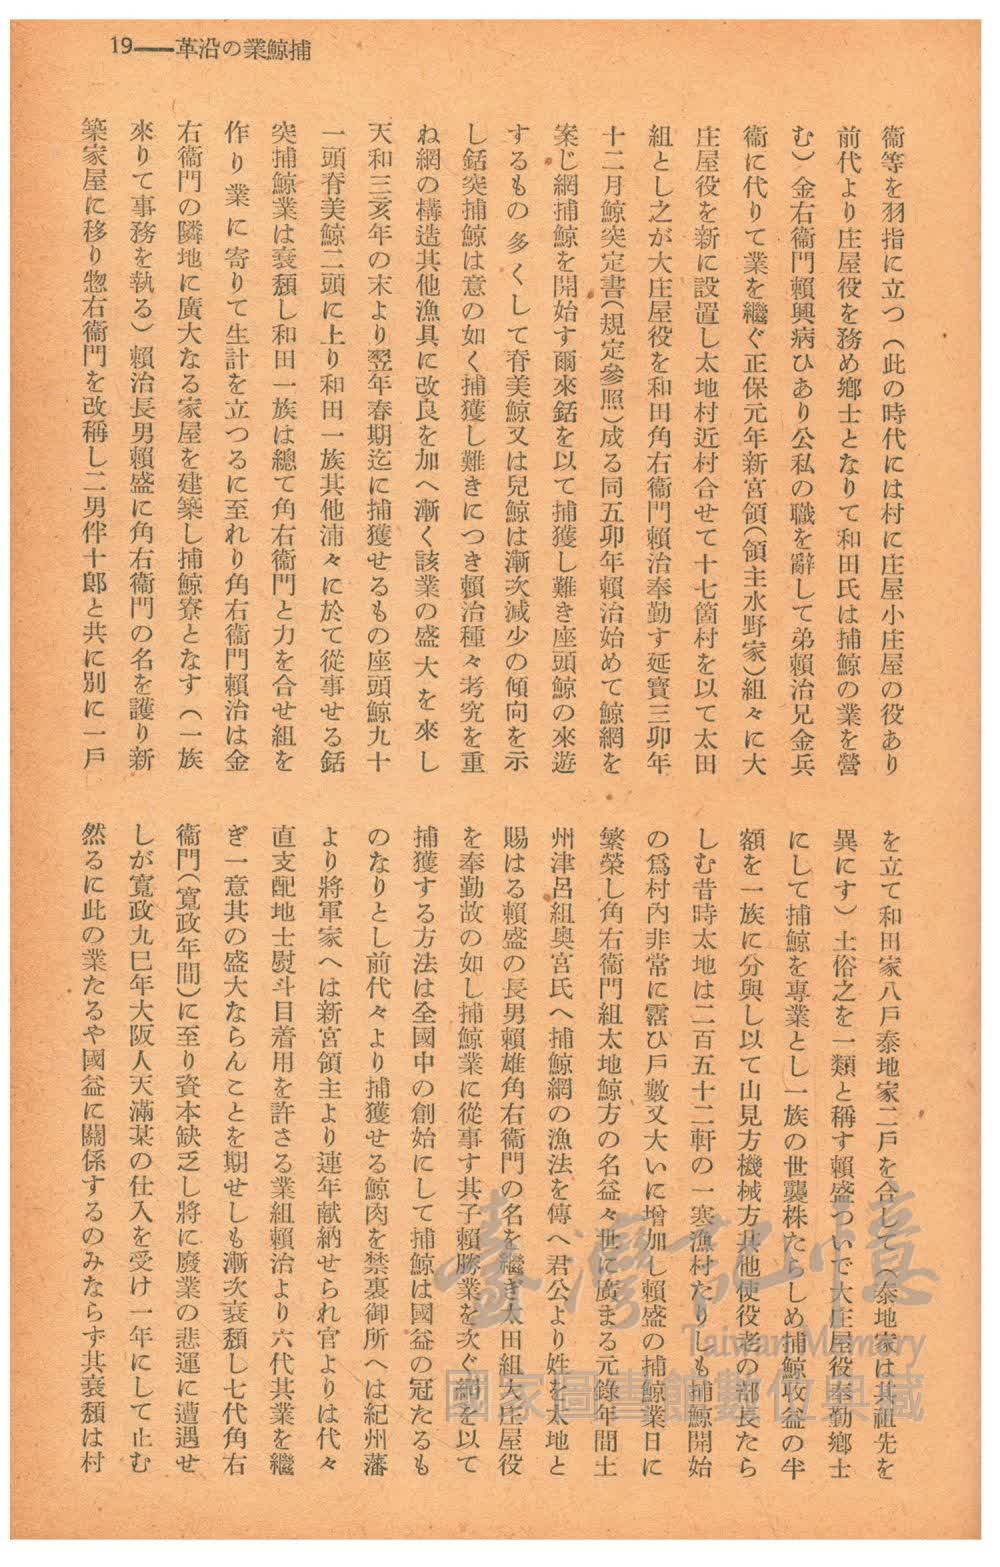 19――革沿の業鯨捕
衞等を羽指に立つ（此の時代には村に庄屋小庄屋の役あり
前代より庄屋役を務め鄕士となりて和田氏は捕鯨の業を營
む）金右衞門賴興病ひあり公私の職を辭して弟賴治兄金兵
衞に代りて業を繼ぐ正保元年新宮領（領主水野家）組々に大
庄屋役を新に設置し太地村近村合せて十七箇村を以て太田
組とし之が大庄屋役を和田角右衞門賴治奉勤す延寳三卯年
十二月鯨突定書（規定參照）成る同五卯年賴治始めて鯨網を
案じ網捕鯨を開始す爾來銛を以て捕獲し難き座頭鯨の來遊
するもの多くして脊美鯨又は兒鯨は漸次減少の傾向を示
し銛突捕鯨は意の如く捕獲し難きにつき賴治種々考究を重
ね網の構造其他漁具に改良を加へ漸く該業の盛大を來し
天和三亥年の末より翌年春期迄に捕獲せるもの座頭鯨九十
一頭脊美鯨二頭に上り和田一族其他浦々に於て從事せる銛
突捕鯨業は衰頽し和田一族は總て角右衞門と力を合せ組を
作り業に寄りて生計を立つるに至れり角右衞門賴治は金
右衞門の隣地に廣大なる家屋を建築し捕鯨寮となす（一族
來りて事務を執る）賴治長男賴盛に角右衞門の名を護り新
築家屋に移り惣右衞門を改稱し二男伴十郞と共に別に一戶
を立て和田家八戶泰地家二戶を合して（泰地家は其祖先を
異にす）土俗之を一類と稱す賴盛ついで大庄屋役奉勤鄕士
にして捕鯨を專業とし一族の世襲株たらしめ捕鯨收益の半
額を一族に分與し以て山見方機械方其他使役老の部長たら
しむ昔時太地は二百五十二軒の一寒漁村たりしも捕鯨開始
の爲村內非常に霑ひ戶數又大いに增加し賴盛の捕鯨業日に
繁榮し角右衞門組太地鯨方の名益々世に廣まる元錄年間土
州津呂組奧宮氏へ捕鯨網の漁法を傳へ君公より姓を太地と
賜はる賴盛の長男賴雄角右衞門の名を繼ぎ太田組大庄屋役
を奉勤故の如し捕鯨業に從事す其子賴勝業を次ぐ網を以て
捕獲する方法は全國中の創始にして捕鯨は國益の冠たるも
のなりとし前代々より捕獲せる鯨肉を禁裏御所へは紀州藩
より將軍家へは新宮領主より連年献納せられ官よりは代々
直支配地士熨斗目着用を許さる業組賴治より六代其業を繼
ぎ一意其の盛大ならんことを期せしも漸次衰頽し七代角右
衞門（寬政年間）に至り資本缺乏し將に廢業の悲運に遭遇せ
しが寬政九巳年大阪人天滿某の仕入を受け一年にして止む
然るに此の業たるや國益に關係するのみならず其衰頽は村
臺灣記憶
Taiwan Memory
國家圖書館數位典藏